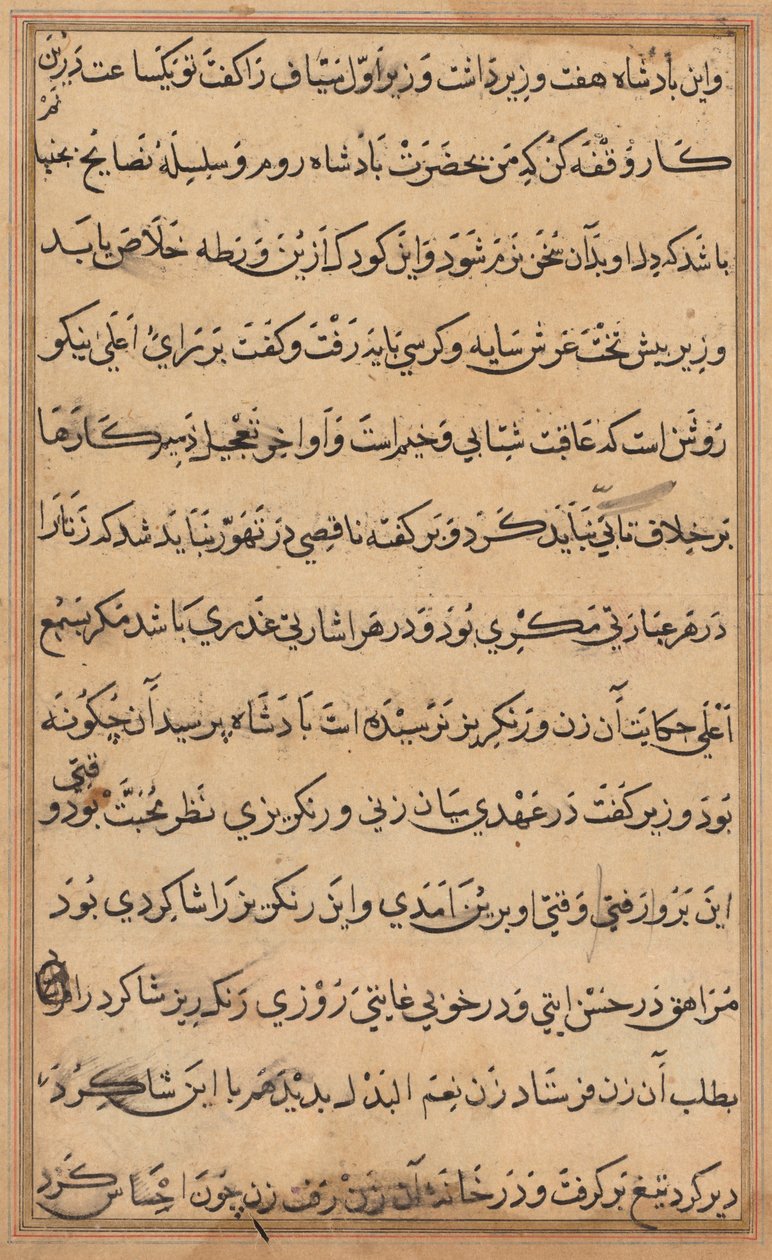 واین بادشاه هفت وزیر داشت وزیر اول سیاف را کفت تو یکساعت درین
کار وقفه کن که من بحضرت بادشاه روم و سلسلهٔ نصایح بجنبا
نم
باشد که دل او بدآن سخن نرم شود و این کودک ازین ورطه خلاص یابد
وزیر بیش تخت عرش سایه و کرسي بایه رفت و کفت بر راي اعلي نیکو
روشن است که عاقبت شتابي وخیم است و اواخر تعجیل ذمیم کارها
بر خلاف تاني نباید کرد و بر کفته ناقصي در تهور نباید شد که زنانرا
در هر عبارتي مکري بود و در هر اشارتي غدري باشد مکر بسمع
اعلي حکایت آن زن و رنکریز نرسیده است بادشاه برسید آن چکونه
بود وزیر کفت در عهدي میان زني و رنکریزي نظر محبت بود و
قتي
این برو رفتي وقتي او برین امدي و این رنکریز را شاکردي بود
مراهق در حسن ایتي و در خوبي غایتي روزي رنکریز شاکرد را
بطلب آن زن فرستاد زن نعم البدل بدید هم با این شاکرد
دیر کرد تیغ بر کرفت و در خانهٔ آن زن رفت زن چون احساس کرد